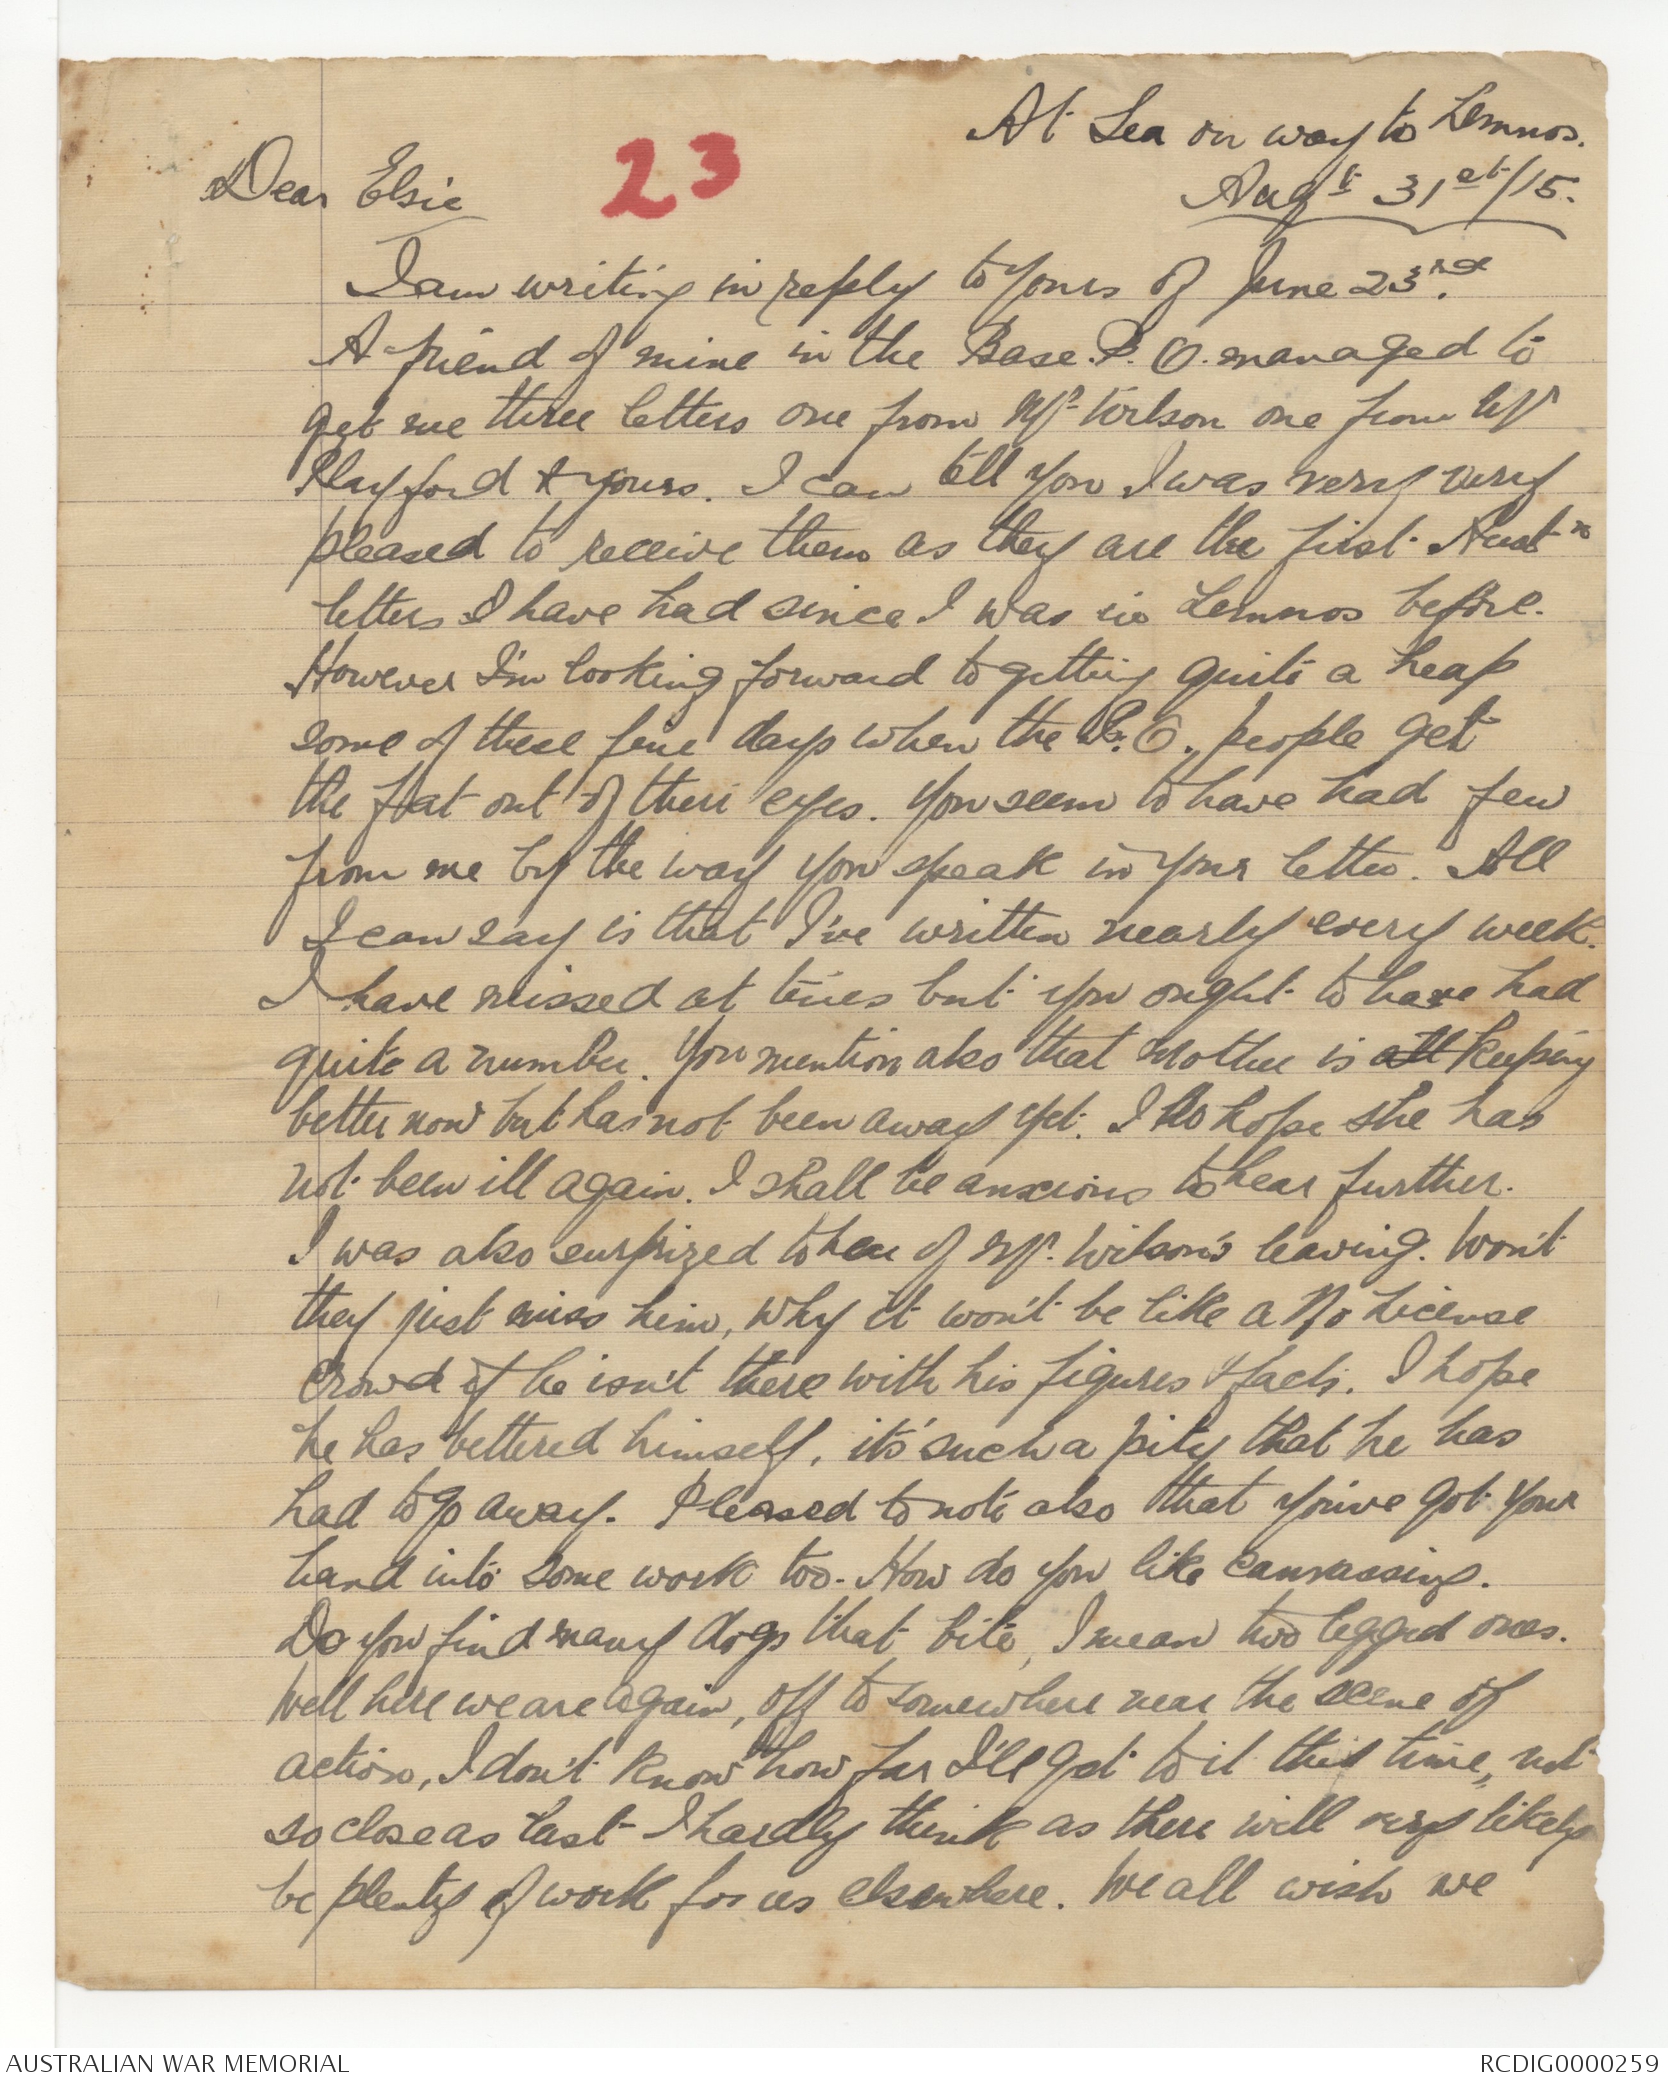 At Sea on way to Lemnos.
Augt 31st/15.
23
Dear Elsie
I am writing in reply to yours of June 23rd.
A friend of mine in the Base. P. O. managed to
get me three letters one from Mr Wilson one from Mr
Playford & yours. I can tell you I was very very
pleased to receive them as they are the first Austn
letters I have had since I was in Lemnos before.
However I'm looking forward to getting quite a heap
some of these fine days when the P. O., people get
the fat out of their eyes. You seem to have had few
from me by the way you speak in your letter. All
I can say is that I've written nearly every week.
I have missed at times but you ought to have had
quite a number. You mention also that Mother is all keeping
better now but has not been away yet. I do hope she has
not been ill again. I shall be anxious to hear further.
I was also surprized to hear of Mr. Wilson's leaving. Won't
they just miss him, why it won't be like a No License
Crowd if he isn't there with his figures & facts. I hope
he has bettered himself, it's such a pity that he has
had to go away. Pleased to note also that you've got your
hand into some work too. How do you like canvassing.
Do you find many dogs that bite, I mean two legged ones.
Well here we are again, off to somewhere near the scene of
action, I don't know how far I'll get to it this time, not
so close as last I hardly think as there will very likely
be plenty of work for us elsewhere. We all wish we
AUSTRALIAN WAR MEMORIAL
RCDIG0000259